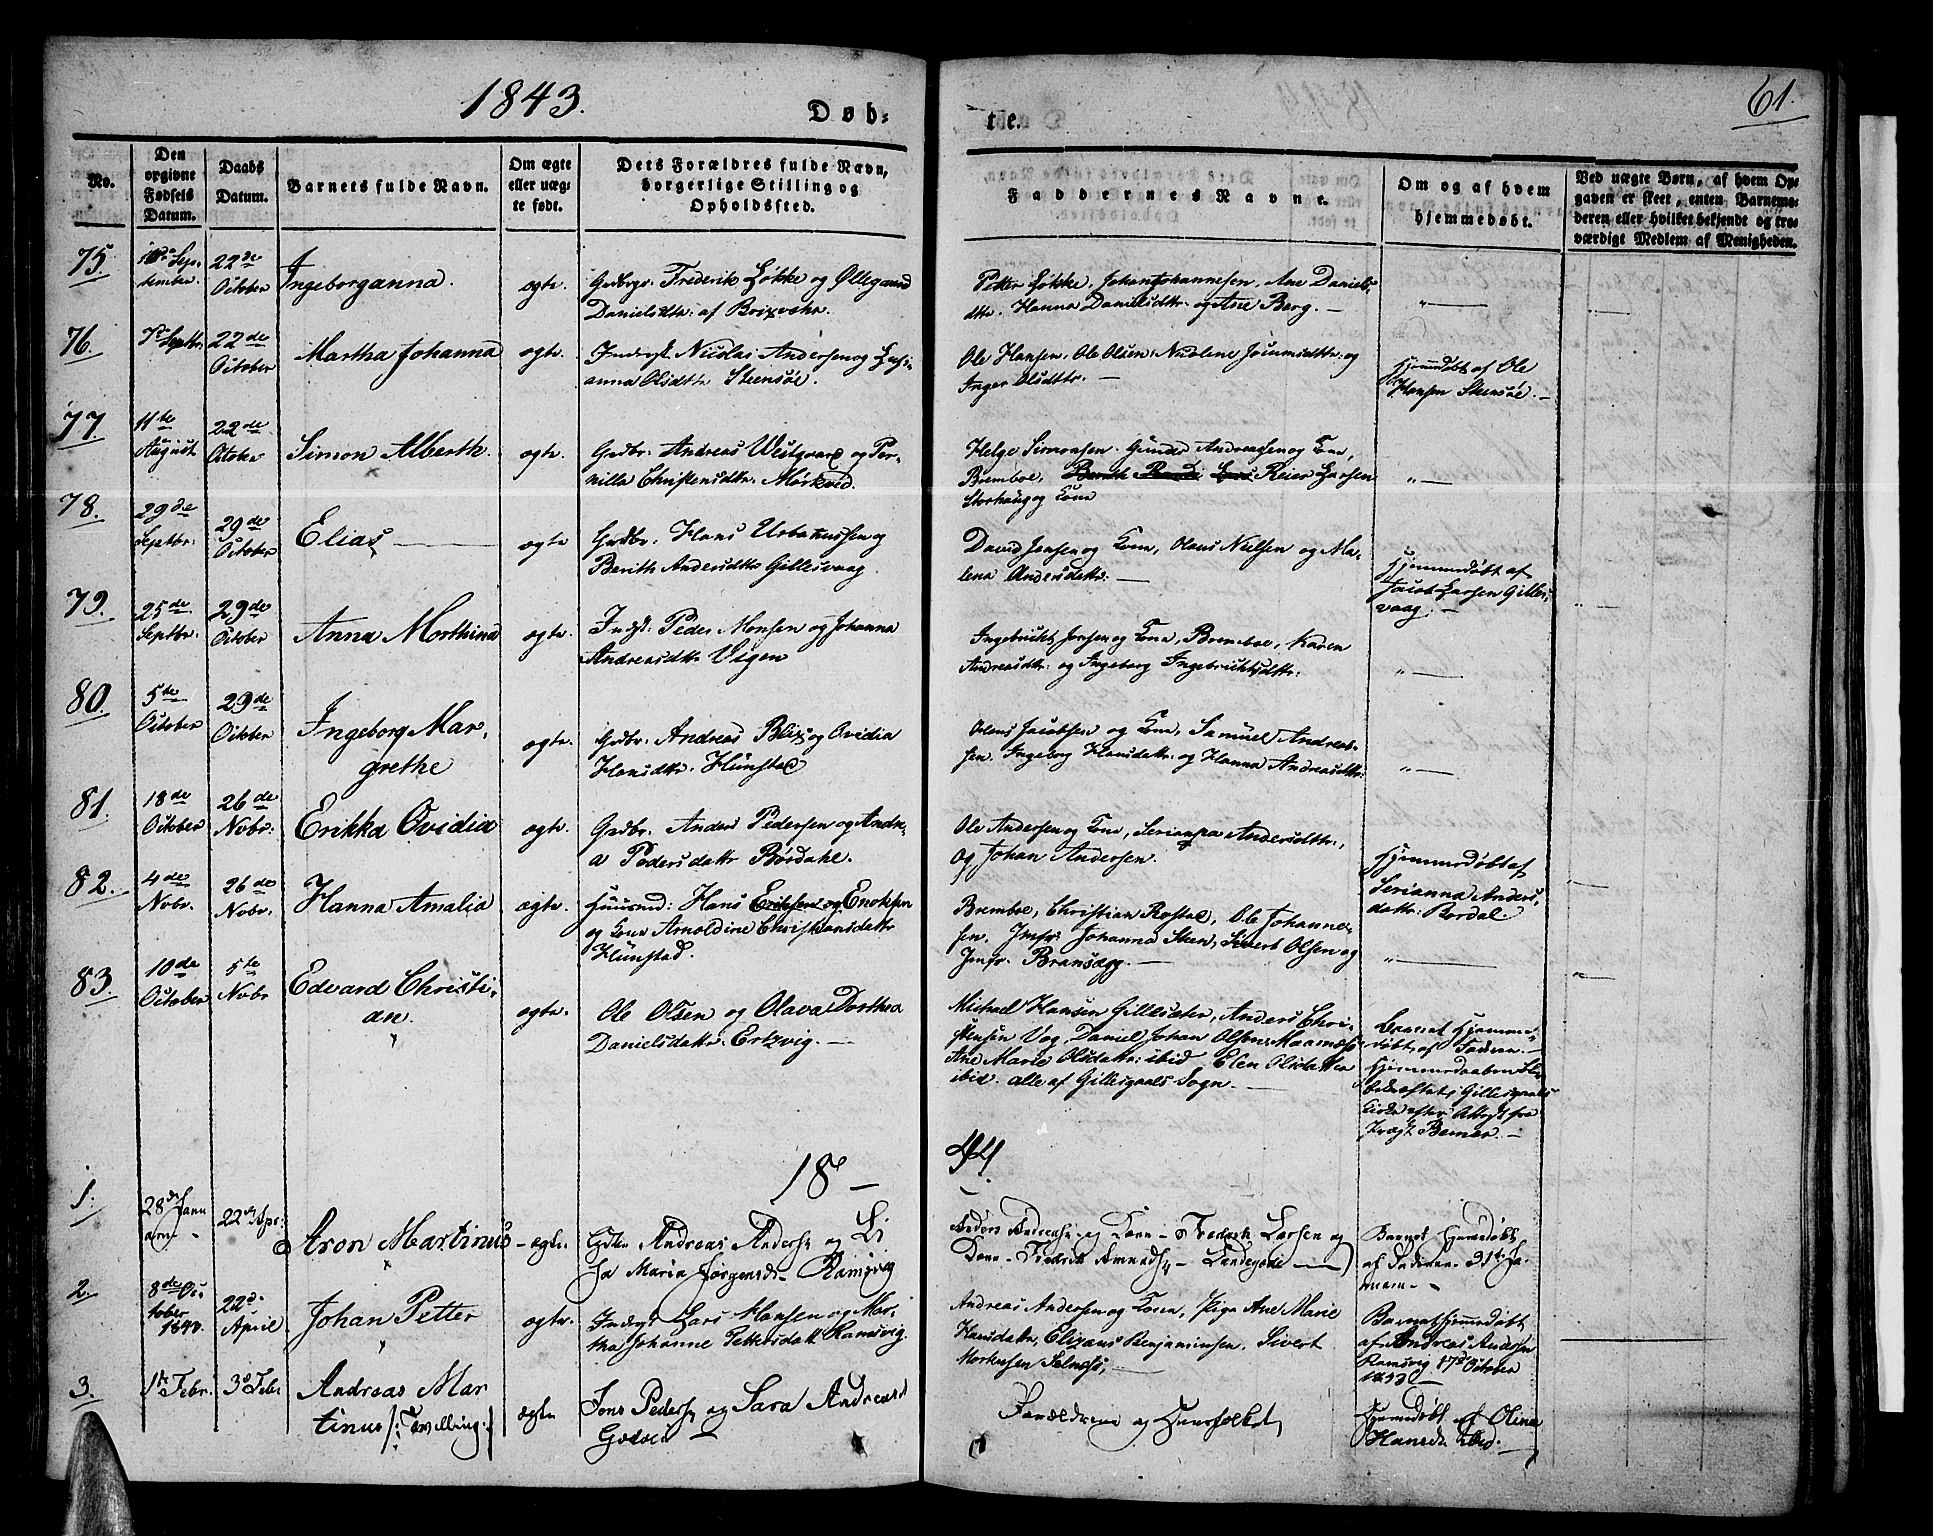 1843.
Døb-
te.
61.
No.
Den
opgivne
Fødsels
Datum.
Daabs
Datum.
Barnets fulde Navn.
Om ægte
eller uæg-
te født.
Dets Forældres fulde Navn,
borgerlige Stilling og
Opholdssted.
Faddernes Navne.
Om og af hvem
hjemmedøbt.
Ved uægte Børn, af hvem Op-
gaven er skeet, enten Barnemo-
deren eller hvilket bekjendt og tro-
værdigt Medlem af Menigheden.
75.
Sep-
tember
22de
October
Ingeborganna.
ægte.
Frederik Løkke og Øllegaard
Danielsdtr: af
Petter Løkke, Johan Johannesen, Ane Daniels-
dtr. Hanna Danielsdtr. og Ane Berg. —
" —
76.
7de Septbr.
22de
October
Martha Johanna
ægte.
Indrgst. Nicolai Andersen og
anna Olsdttr Steensøe.
Ole Hansen, Ole Olsen, Nicoline Joramsdttr. og
Inger Olsdttr. —
Hjemmdøbt af Ole
Hansen Steensøe. —
77.
11te
August
22de
October
Simon Alberth.
ægte.
Gadbr. Andreas Westgaard og Per-
nilla Christensdttr. Mørkved.
Helge Simonsen. Gunder Andreassen og Kone,
Bremboe, Reier Larsen
Storhaug og Kone
" —
78.
29de
Septbr:
29de
October
Elias —
ægte
Gaadbr. Hans Urbanussen og
Berith Andersdttr Gillesvaag.
David Jensen og Kone, Olaus Nielsen og Ma-
lena Andersdattr: —
Hjemmedøbt af
Jacob Larsen Gilles-
vaag. —
79.
25de
Septbr:
29de
October
Anna Morthina
ægte.
Indst: Peder Monsen og Johanna
Andreasdttr Vigen
Ingebrickt Jensen og Kone, Bremboe, Karen
Andreasdttr: og Ingeborg Ingebricktsdttr:
" —
80.
5te
October
29de
October
Ingeborg Mar-
grethe
ægte.
Gaadbr. Andreas Blix og Ovidia
Hansdttr. Hunstad
Olaus Jacobsen og Kone, Samuel Andreas-
sen. Ingeborg Hansdattr: og Hanna Andreasdttr:
" —
81.
18de
October
26de
Novbr:
Erikka Ovidia
ægte.
Gaadbr. Anders Pedersen og Andre-
a Pedersdattr Børdahl.
Ole Andersen og Kone, Serianna Andersdttr.,
og Johan Andersen.
Hjemmedøbt af
Serianna Anders-
dattr: Bordal.
82.
4de
Novbr.
26de
Novbr.
Hanna Amalia
ægte.
Huusmd: Hans Eriksen og Enoksen
og Kone Arnoldine Christiansdattr
Hunstad.
Bremboe, Christian Røstad, Ole Johanne-
sen. Jmfr: Johanna Steen, Sivert Olsen og
Jmfr. Bransægg. —
" —
83.
10de
October
5te
Novbr
Edvard Christi-
an.
"
ægte.
Ole Olsen og Olava Dorthea
Danielsdattr. Ertzvig. —
Michael Hansen Gillesæter, Anders Chri-
stensen Vog, Daniel Johan Olsen Maanæss
Ane Marie Olsdattr: ibid Elen Olsdatter
ibid. alle af Gillesgaals Sogn. —
Barnet Hjemme-
døbt af Faderen. —
Hjemmedaaben
bekræftet i Gillesgaals
Kirke efter Attest fra
Provst Bernar. —
18 —
44
1.
28de Janu
arii —
22 Apr:
Aron Martinus
— ægte.
Andreas Andersen og Li
sa Maria Jørgensdr — Ramsvig
Anders Andreasen og Kone — Frederik Larsen og
Kone — Frederik Landegode —
Barnet Hjemdøbt
af Faderen 31te Ja-
nuar —
2.
8de Oc-
tober
1843.
22d.
April
Johan Petter
ægte.
Indrgst Lars Hansen og Mar-
tha Johanne Pettersdatt Ramsvig.
Andreas Andersen og Kone, Pige Ane Marie
Hansdattr, Elizeus Benjaminsen. Sivert
Mortensen Selnæss,
Barnet Hjemdøbt
af Andreas Andersen
Ramsvig 17de October
1843 —
3.
1te Febr.
3de Febr
Andreas Mar
tinus /: Tvilling :/
ægte
Jens Peders. og Sara Andreasd
Godøen —
Forældrene og Huusfolket
Hjemdøbt af Olina
Hansdr ibid. —